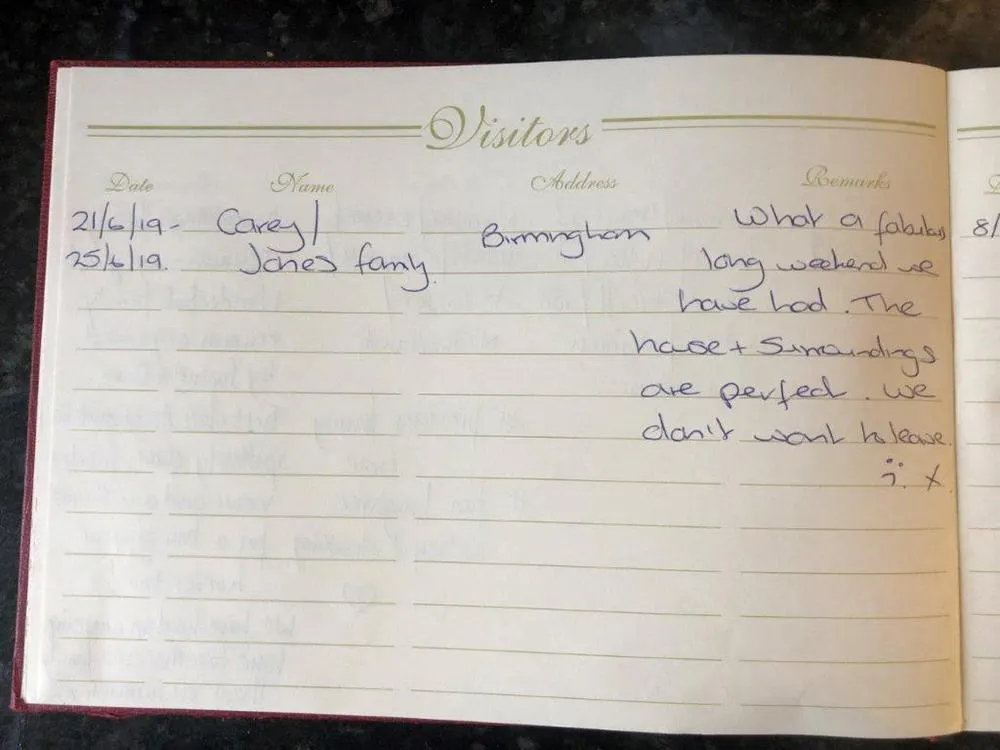 Visitors
Date Name Address Remarks
21/6/19 - Carey/ Birmingham What a fabulous 8/
25/6/19. Jones family. long weekend we
have had. The
house + surroundings
are perfect. we
don't want to leave.
x